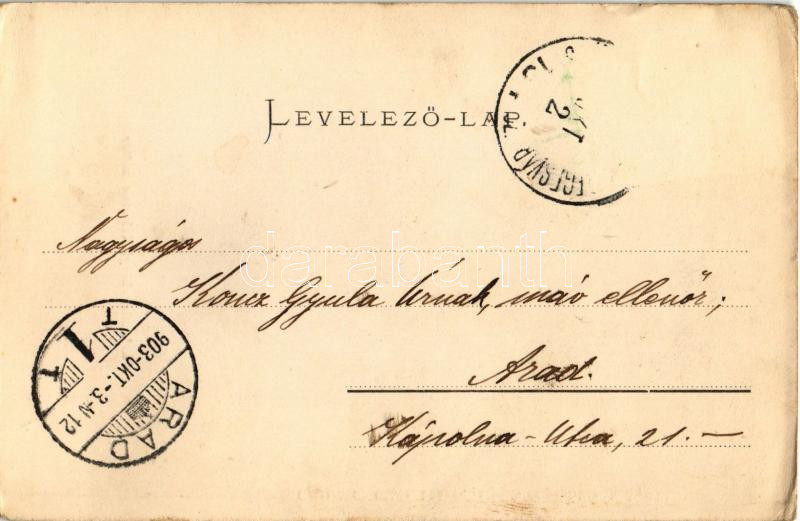 LEVELEZŐ-LAP.
OKT 2
Nagyságos
Koncz Gyula Úrnak, máv ellenőr;
darabanth
Arad.
Kápolna-Utca, 21.—
T 1 T
903-OKT.-3.-N 12
ARAD